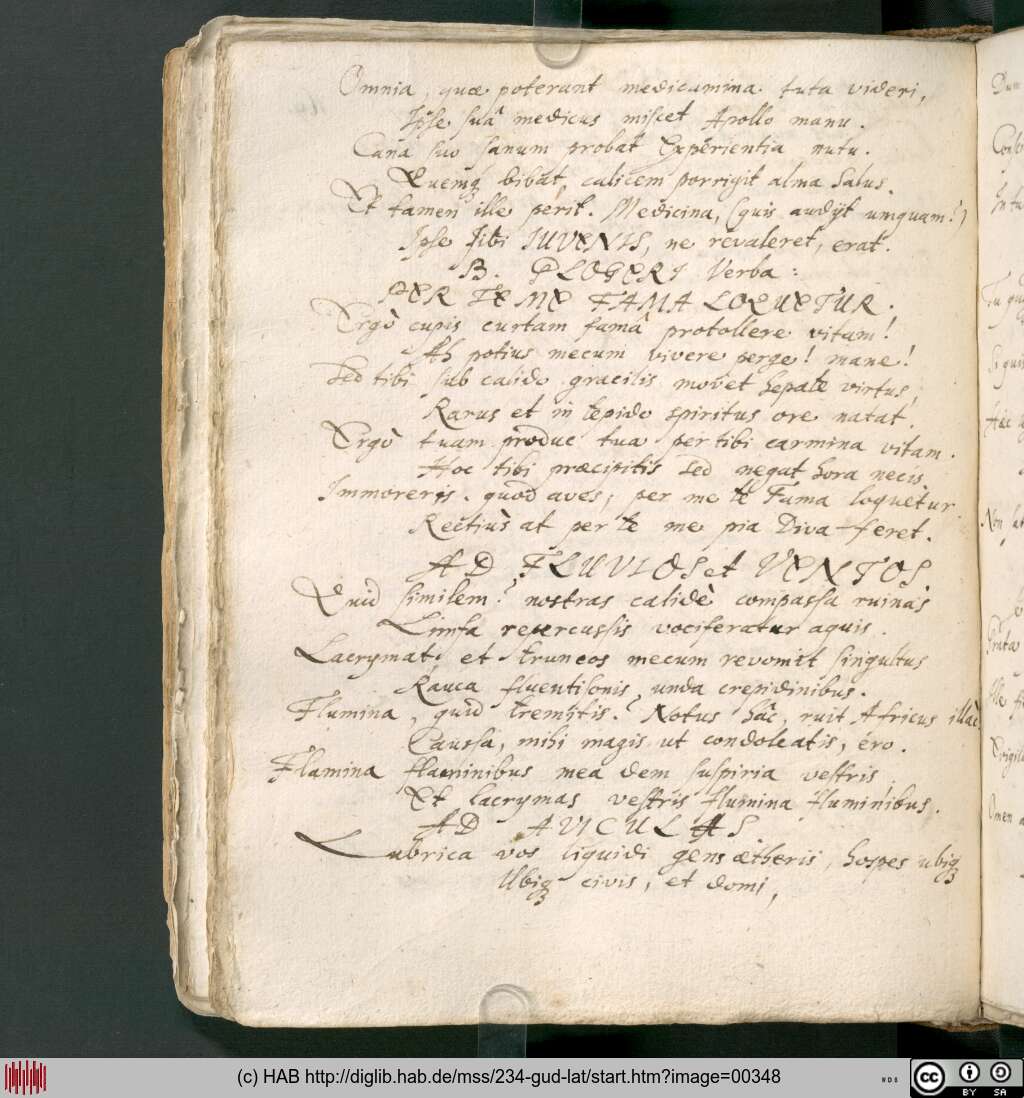 Omnia, quæ poterant medicamina tuta videri,
Ipse suâ medicus miscet Apollo manu.
Cana suo sanum probat Experientia nutu.
Quemq bibat, calicem porrigit alma Salus.
Et tamen ille perit. Medicina, (quis audijt umquam!)
Ipse sibi IUVENIS, ne revaleret, erat.
B. PLOGERI Verba:
PER TE ME FAMA LOQUETUR.
Ergò cupis curtam famâ protollere vitam!
Ah potius mecum vivere perge! mane!
Sed tibi sub calido gracilis movet hepate virtus,
Rarus et in tepido spiritus ore natat.
Ergò tuam produc tua per tibi carmina vitam.
Hoc tibi præcipitis sed negat hora necis.
Immoreris. quod aves, per me te Fama loquetur.
Rectiùs at per te me pia Diva feret.
AD FLUVIOS et VENTOS.
Quid similem? nostras calidè compassa ruinas
Limfa repercussis vociferatur aquis.
Lacrymat, et truncos mecum revomit singultus
Rauca fluentisonis unda crepidinibus.
Flumina, quid tremitis? Notus hâc, ruit Africus illàc
Caussa, mihi magis ut condoleatis, ero.
Flamina flaminibus mea dem suspiria vestris,
Et lacrymas vestris flumina fluminibus.
AD AVICULAS.
Lubrica vos liquidi gens ætheris, hospes ubiq
Ubiq civis, et domi,
(c) HAB http://diglib.hab.de/mss/234-gud-lat/start.htm?image=00348
WDB
CC
BY SA